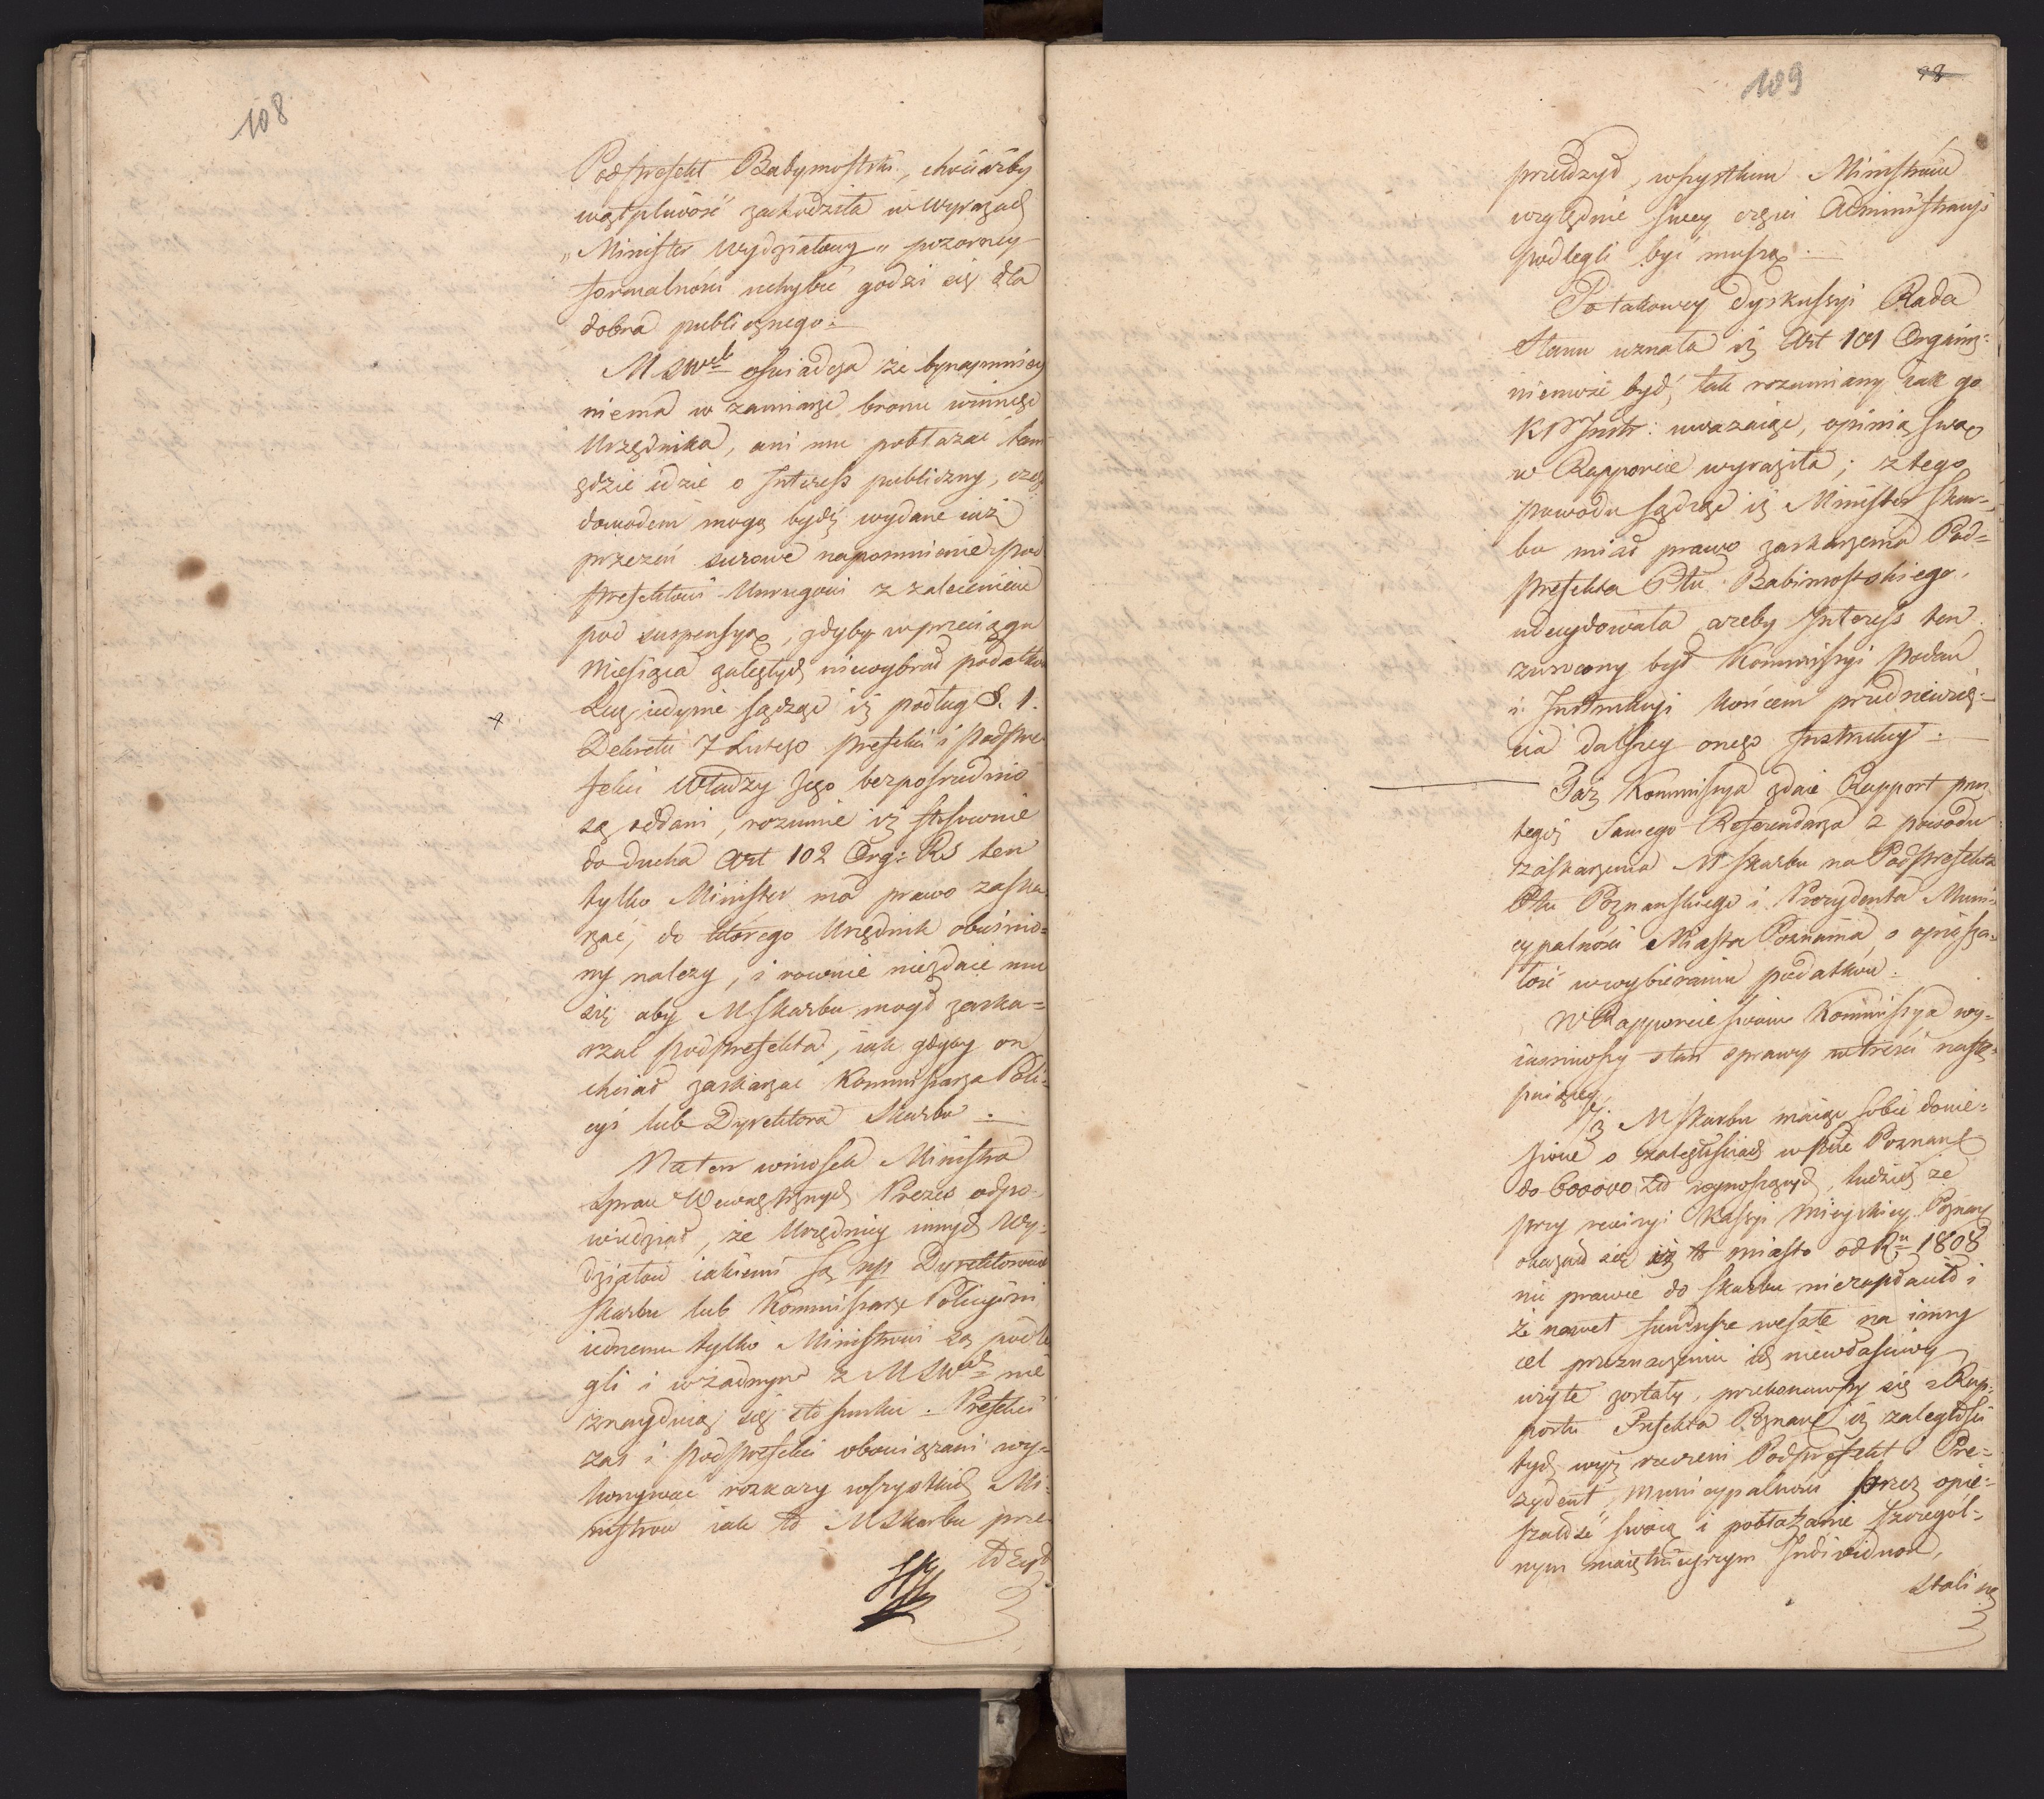 108
Podprefekt Babymostski, chociażby
wątpliwość zachodziła w wyrazach
„Minister Wydziałowy„ pozorney
formalności uchybić godzi się dla
dobra publicznego.
M SWch oświadcza że bynaymniey
niema w zamiarze bronić winnego
Urzędnika, ani mu pobłażać tam
gdzie idzie o Interess publiczny, czego
dowodem mogą bydź wydane iuż
przezeń surowe napomnienie pod
prefektowi Unrugowi z zaleceniem
pod suspensyą, gdyby w przeciągu
Miesiąca zaległych niewybrał podatków
Lecz iedynie sądząc iż podług §. 1.
Dekretu 7 Lutego prefekci i podpre-
fekci Władzy Jego bezpośrednio
są oddani, rozumie iż stosownie
do ducha Art 102 Org: RS ten
tylko Minister ma prawo zaska-
rżać, do którego Urzędnik obwinio=
ny należy, i rownie niezdaie mu
się aby M Skarbu mogł zaska=
rżać podprefekta, iak gdyby on
chciał zaskarżać Kommissarza Poli=
cyi lub Dyrektora Skarbu.
Na ten wniosek Ministra
Spraw Wewnętrznych Prezes odpo-
wiedział, że Urzędnicy innych Wy-
działow iakiemi są np Dyrektorowie
Skarbu lub Kommissarze Policyini
iednemu tylko Ministrowi są podle
gli i w żadnym z M SWch nie
znayduią się stosunku. Prefekci
zaś i podprefekci obowiązani wy=
konywać rozkazy wszystkich Mi=
nistrow iak to M Skarbu prze-
łożych
109
98
przełdzyd, wszystkim Ministrom
względnie swey części Administracyi
podlegli być muszą.
Po takowey dyskussyi Rada
Stanu uznała iż Art 101 Organiz:
niemoże bydź tak rozumiany iak go
K P Instr: uważaiąc, opinią swą
w Rapporcie wyraziła; z tego
powodu sądząc iż Minister Skar-
bu miał prawo zaskarżenia Pod=
prefekta Ptu Babimostskiego,
udecydowała ażeby Interess ten
zwrócony był Kommissyi Podań
i Instrukcyi końcem przedsiewzię=
cia dalszey onego Instrukcyi.
Taż Kommissya zdaie Rapport przez
tegoż samego Referendarza z powodu
zaskarżenia M Skarbu na Podprefekta
Ptu Poznanskiego i Prezydenta Muni=
cypalności Miasta Poznania o opiesza=
łość w wybieraniu podatków.
W Rapporcie swoim Kommissya wy=
iaśniwszy stan sprawy w treści nastę=
puiącey
Iż M Skarbu maiąc sobie donie=
sione o zaległościach w Ptcie Poznań
do 600000 zł wynoszących, tudzież że
przy rewizyi Kassyi Mieyskiey Poznań
okazało się iż to miasto od Ru 1808
nic prawie do Skarbu niezapłaciło i
że nawet fundusze weszłe na inny
cel przeznaczeniu ich niewłaściwy
użyte zostały, przekonawszy się z Rap-
portu Prefekta Poznań iż zaległości
tych wyż rzeczeni Podprefekt i Pre=
zydent Municypalności przez opie=
szałość swoią i pobłażanie szczegól=
nym maiętnieyszym Individuom,
stali się